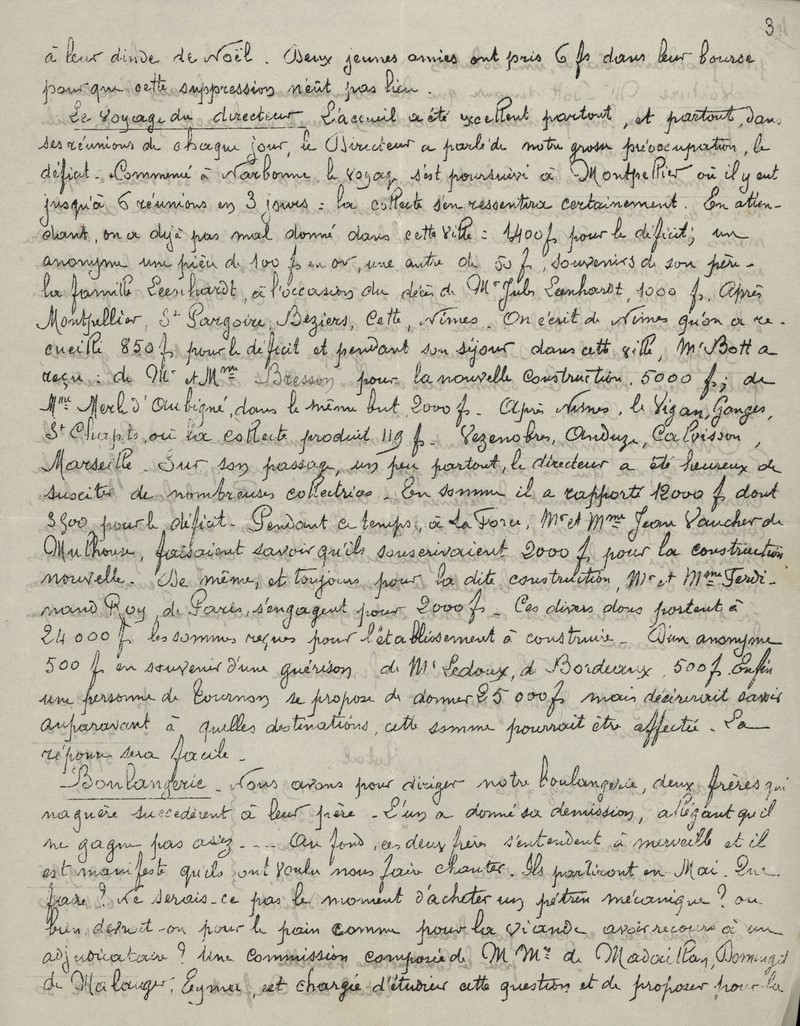 3
à leur dinde de Noël. Deux jeunes amies ont pris 6 fs dans leur bourse
pour que cette suppression n'eût pas lieu.
Le voyage du directeur. L'accueil a été excellent partout, et partout, dans
ses réunions de chaque jour, le Directeur a parlé de notre grosse préoccupation, le
déficit. Commencé à Narbonne, le voyage s'est poursuivi à Montpellier où il y eut
jusqu'à 6 réunions en 3 jours : la collecte s'en ressentira certainement. En atten-
dant, on a déjà pas mal donné dans cette ville : 1400 f pour le déficit; un
anonyme une pièce de 100 f en or, une autre de 50 f, souvenirs de son père -
la famille Leenhardt, à l'occasion du décès de Mr Jules Leenhardt, 1000 f. Après
Montpellier, St Pargoire, Béziers, Cette, Nîmes. On écrit de Nîmes qu'on a re-
cueilli 850 f pour le déficit et pendant son séjour dans cette ville, Mr Bott a
reçu : de Mr et Mme Bresson pour la nouvelle construction, 5000 f; de
Mme Merle d'Aubigné, dans le même but, 2000 f. Après Nîmes, le Vigan, Ganges,
St Chapts, où la collecte produit 119 f. Vezenobres, Anduze, Calvisson,
Marseille. Sur son passage, un peu partout, le directeur a été heureux de
susciter de nombreuses collectrices. En somme il a rapporté 12000 f dont
3500 pour le déficit. Pendant ce temps, à La Force, Mr et Mme Jean Vaucher de
Mulhouse, faisaient savoir qu'ils souscrivaient 2000 f pour la construction
nouvelle. De même, et toujours pour la dite construction, Mr et Mme Ferdi-
nand Roy, de Paris, s'engagent pour 2000 f. Ces divers dons portent à
24 000 f les sommes reçues pour l'établissement à construire. D'un anonyme
500 f en souvenir d'une guérison de Mr Ledoux, d Bordeaux, 500 f. Enfin
une personne de Tournon se propose de donner 25 000 f mais désirerait savoir
auparavant à quelles destinations, cette somme pourrait être affectée. La
réponse sera facile.
Boulangerie. Nous avons pour diriger notre boulangerie, deux frères qui
naguère succédèrent à leur père. L'un a donné sa démission, alléguant qu'il
ne gagne pas assez .... Au fond, ces deux frères s'entendent à merveille et il
est manifeste qu'ils ont voulu nous faire chanter. Ils partiront en Mai. Que
faire ? Ne serais-ce pas le moment d'acheter un pétrin mécanique ? ou
bien devrait-on pour le pain comme pour la viande avoir recours à un
adjudicataire ? Une commission composée de M Mrs de Madaillan, Domenget
de Malauger, Eymer, est chargée d'étudier cette question et de proposer pour la